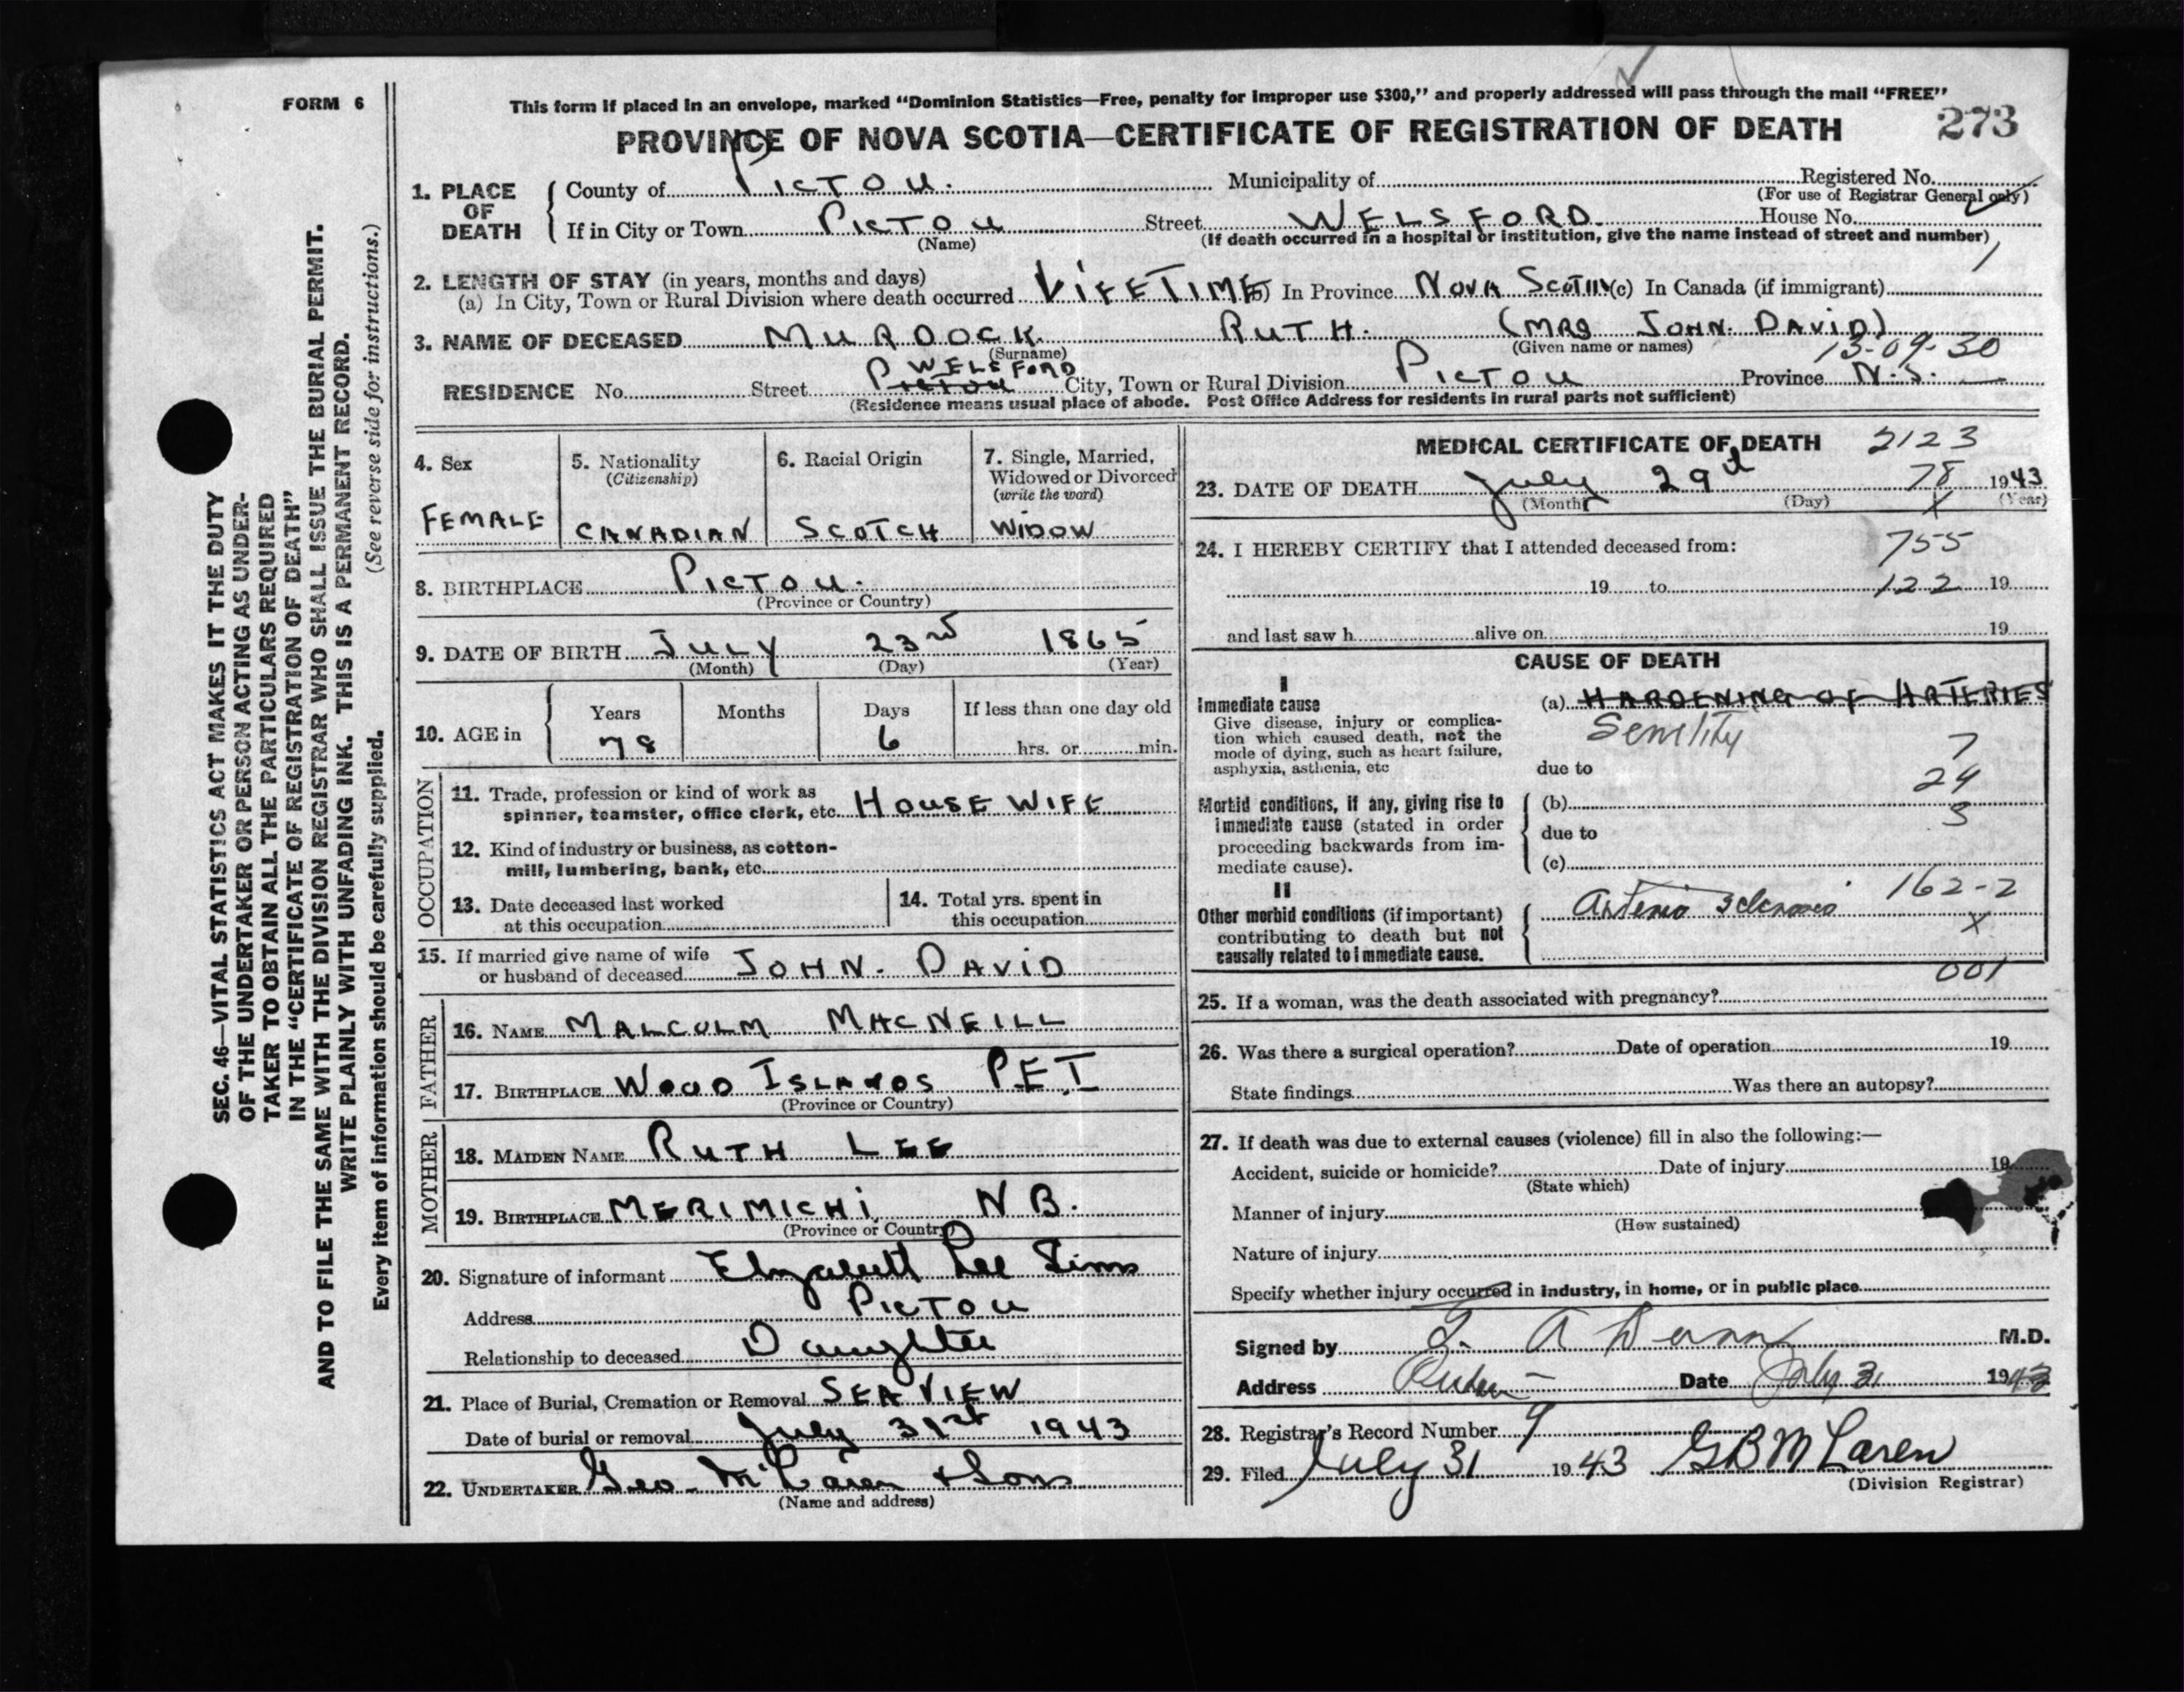 FORM 6
This form if placed in an envelope, marked “Dominion Statistics—Free, penalty for improper use $300,” and properly addressed will pass through the mail “FREE”
PROVINCE OF NOVA SCOTIA—CERTIFICATE OF REGISTRATION OF DEATH 273
1. PLACE OF DEATH
County of PICTOU. Municipality of Registered No.
(For use of Registrar General only)
If in City or Town PICTOU Street WELSFORD House No.
(Name) (If death occurred in a hospital or institution, give the name instead of street and number)
2. LENGTH OF STAY (in years, months and days)
(a) In City, Town or Rural Division where death occurred LIFETIME (b) In Province NOVA SCOTIA (c) In Canada (if immigrant)
3. NAME OF DECEASED MURDOCK RUTH. (MRS JOHN. DAVID)
(Surname) (Given name or names) 13-09-30
WELSFORD
RESIDENCE No. Street PICTOU City, Town or Rural Division PICTOU Province N.S.
(Residence means usual place of abode. Post Office Address for residents in rural parts not sufficient)
4. Sex
FEMALE
5. Nationality
(Citizenship)
CANADIAN
6. Racial Origin
SCOTCH
7. Single, Married,
Widowed or Divorced
(write the word)
WIDOW
8. BIRTHPLACE PICTOU.
(Province or Country)
9. DATE OF BIRTH JULY 23rd 1865
(Month) (Day) (Year)
10. AGE in
Years Months Days If less than one day old
78 6 hrs. or min.
OCCUPATION
11. Trade, profession or kind of work as
spinner, teamster, office clerk, etc. HOUSE WIFE
12. Kind of industry or business, as cotton-
mill, lumbering, bank, etc.
13. Date deceased last worked
at this occupation
14. Total yrs. spent in
this occupation
15. If married give name of wife
or husband of deceased JOHN. DAVID
FATHER
16. NAME MALCOLM MACNEILL
17. BIRTHPLACE WOOD ISLANDS P.E.I
(Province or Country)
MOTHER
18. MAIDEN NAME RUTH LEE
19. BIRTHPLACE MERIMICHI N B.
(Province or Country)
20. Signature of informant Elizabeth Lee Sims
Address PICTOU
Relationship to deceased Daughter
21. Place of Burial, Cremation or Removal SEAVIEW
Date of burial or removal July 31st 1943
22. UNDERTAKER Geo. McLaren & Sons
(Name and address)
MEDICAL CERTIFICATE OF DEATH 2123
78
23. DATE OF DEATH July 29th 1943
(Month) (Day) X (Year)
24. I HEREBY CERTIFY that I attended deceased from: 755
19 to 122 19
and last saw h alive on 19
CAUSE OF DEATH
I
Immediate cause
Give disease, injury or complica-
tion which caused death, not the
mode of dying, such as heart failure,
asphyxia, asthenia, etc
(a) HARDENING OF ARTERIES
Senility
7
due to
24
Morbid conditions, if any, giving rise to
immediate cause (stated in order
proceeding backwards from im-
mediate cause).
(b)
3
due to
(c)
II
Other morbid conditions (if important)
contributing to death but not
causally related to immediate cause.
Arterio Sclerosis 162-2
X
001
25. If a woman, was the death associated with pregnancy?
26. Was there a surgical operation? Date of operation 19
State findings Was there an autopsy?
27. If death was due to external causes (violence) fill in also the following:—
Accident, suicide or homicide? Date of injury 19
(State which)
Manner of injury
(How sustained)
Nature of injury
Specify whether injury occurred in industry, in home, or in public place
Signed by A M.D.
Address Date July 31 1943
28. Registrar's Record Number 9
29. Filed July 31 1943 GB McLaren
(Division Registrar)
SEC. 46—VITAL STATISTICS ACT MAKES IT THE DUTY
OF THE UNDERTAKER OR PERSON ACTING AS UNDER-
TAKER TO OBTAIN ALL THE PARTICULARS REQUIRED
IN THE “CERTIFICATE OF REGISTRATION OF DEATH”
AND TO FILE THE SAME WITH THE DIVISION REGISTRAR WHO SHALL ISSUE THE BURIAL PERMIT.
WRITE PLAINLY WITH UNFADING INK. THIS IS A PERMANENT RECORD.
Every item of information should be carefully supplied. (See reverse side for instructions.)